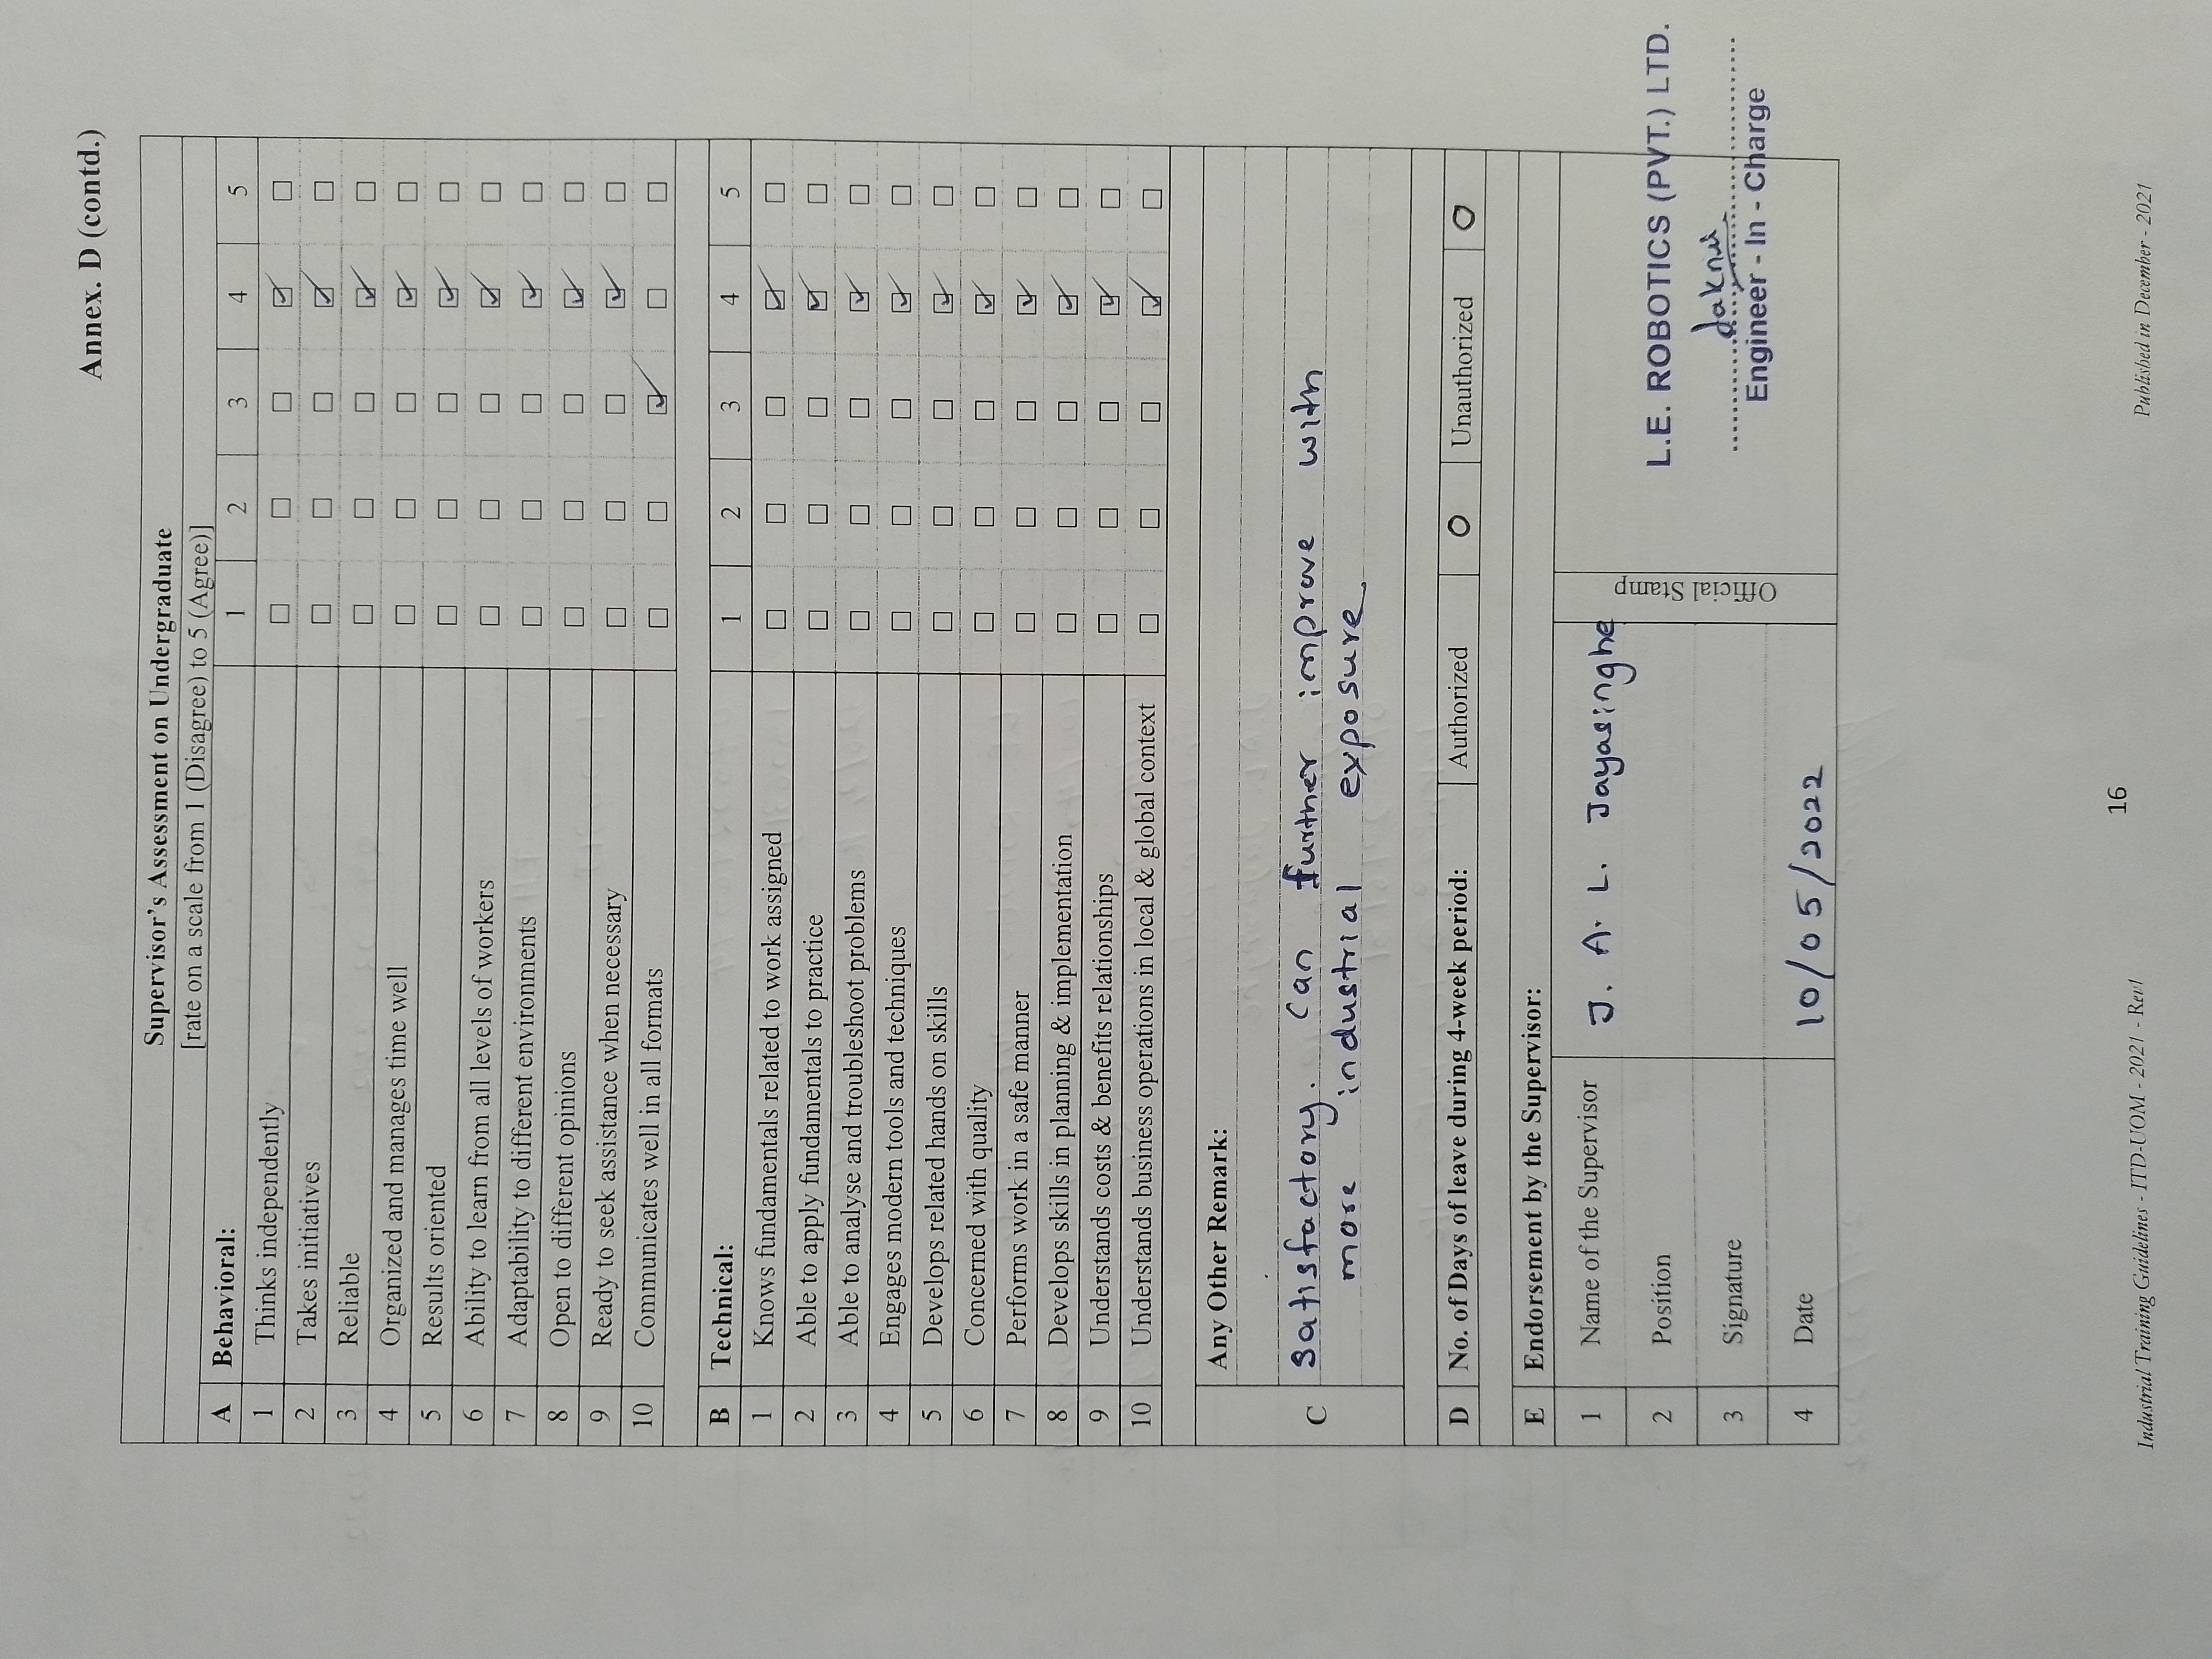 Annex. D (contd.)
Supervisor's Assessment on Undergraduate
[rate on a scale from 1 (Disagree) to 5 (Agree)]
A Behavioral: 1 2 3 4 5
1 Thinks independently
2 Takes initiatives
3 Reliable
4 Organized and manages time well
5 Results oriented
6 Ability to learn from all levels of workers
7 Adaptability to different environments
8 Open to different opinions
9 Ready to seek assistance when necessary
10 Communicates well in all formats
B Technical: 1 2 3 4 5
1 Knows fundamentals related to work assigned
2 Able to apply fundamentals to practice
3 Able to analyse and troubleshoot problems
4 Engages modern tools and techniques
5 Develops related hands on skills
6 Concerned with quality
7 Performs work in a safe manner
8 Develops skills in planning & implementation
9 Understands costs & benefits relationships
10 Understands business operations in local & global context
Any Other Remark:
C
satisfactory. can further improve with
more industrial exposure
D No. of Days of leave during 4-week period: Authorized 0 Unauthorized 0
E Endorsement by the Supervisor:
1 Name of the Supervisor J. A. L. Jayasinghe
2 Position
3 Signature
4 Date 10/05/2022
Official Stamp
L.E. ROBOTICS (PVT.) LTD.
Engineer - In - Charge
16
Industrial Training Guidelines - ITD-UOM - 2021 - Rev1
Published in December - 2021